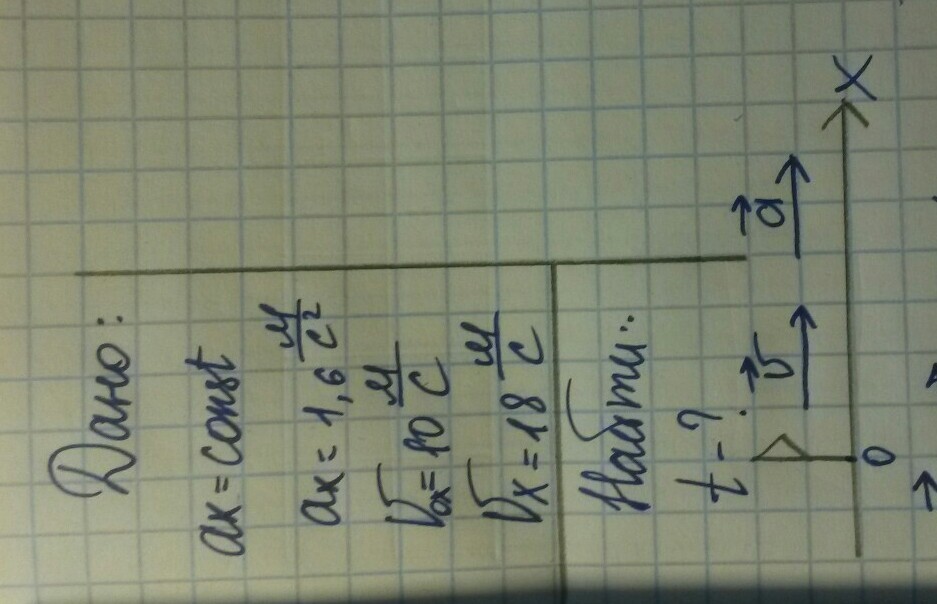 Дано:
ax = const
ax = 1,6 м/с²
V₀x = 10 м/с
Vx = 18 м/с
Найти:
t - ?
v→ a→
0 X